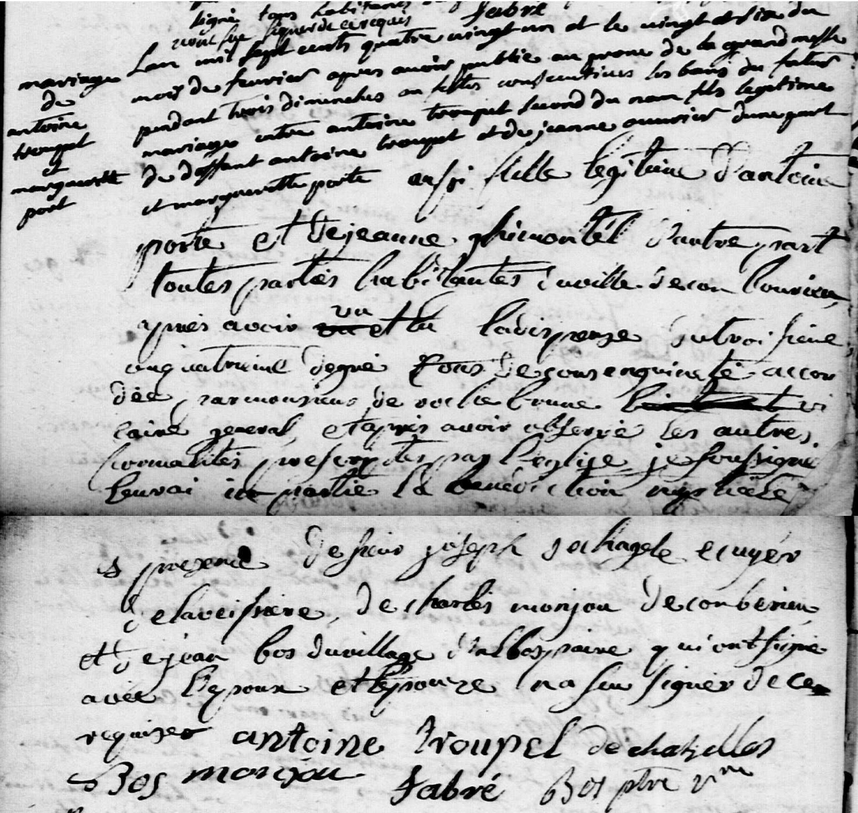 signé tous habitants
Fabré
mariage
de
antoine
troupel
et
margueritte
port
Lan mil sept cents quatre vingt un et le vingt et six du
mois de fevrier apres avoir publié au prone de la grand messe
pendant trois dimanches ou fettes consecutives les bans du futur
mariage entre antoine troupel second du nom fils legitime
de deffant antoine troupel et de jeanne d'une part
et margueritte porte aussi fille legitime d'antoine
porte et de jeanne d'autre part
toutes parties habitantes du ville de
apres avoir vu et lu la dispense du troisieme
au quatrieme degré de consanguinité accor
dée par monsieur de roche brune vi
caire general, et apres avoir observé les autres
formalités prescrites par l'eglise, je soussigné
leur ai imparti la benediction nuptiale
presence de sieur joseph ecuyer
de laveissiere, de charles monjou de
et de jean bos du village d'albospaire qui ont signé
avec l'epoux et l'epouze na su signer de ce
requises antoine troupel de chazelles
Bos monjou Fabré Bos ptre vre